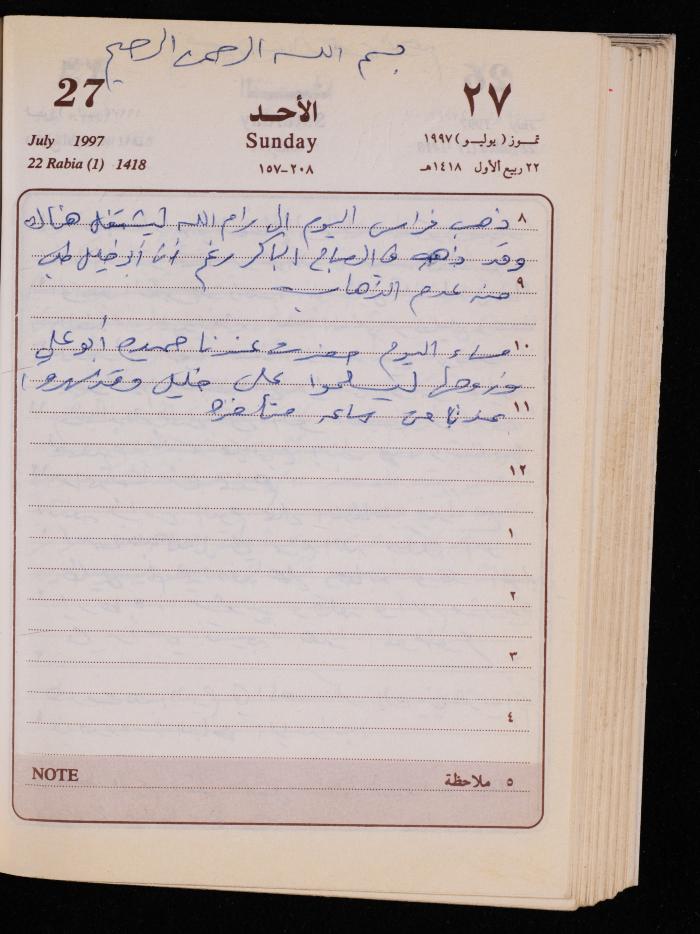 بسم الله الرحمن الرحيم
27
الأحد
٢٧
July 1997
Sunday
تمـوز (يوليـو) ١٩٩٧
22 Rabia (1) 1418
٢٠٨-١٥٧
٢٢ ربيع الأول ١٤١٨هـ
٨ ذهب فراس اليوم الى رام الله ليشتغل هناك
وقد ذهب في الصباح الباكر رغم أن أبو خليل طلب
٩ منه عدم الذهاب
١٠ مساء اليوم حضرت عندنا حميدة أبو علي
وزوجها ليسلموا على خليل وقد سهروا
١١ عندنا من ساعه متأخرة
١٢
١
٢
٣
٤
NOTE
٥ ملاحظة